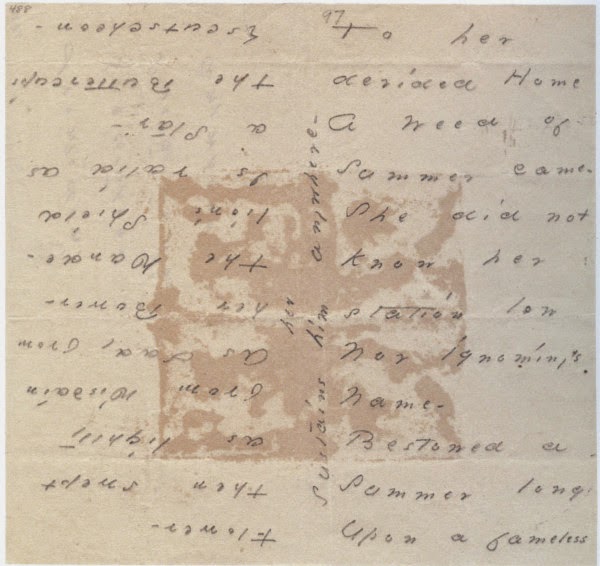 488
97
To her
derided Home
A Weed of
Summer came-
She did not
know her
station low
Nor Ignominy's
Name-
Bestowed a
Summer long
Upon a fameless
Flower-
then swept
as lightly
from Disdain
as Lady from
her Bower-
the Dande-
lion's Shield
is valid as
a Star-
the Buttercup's
Escutcheon-
Sustains him anywhere-
her